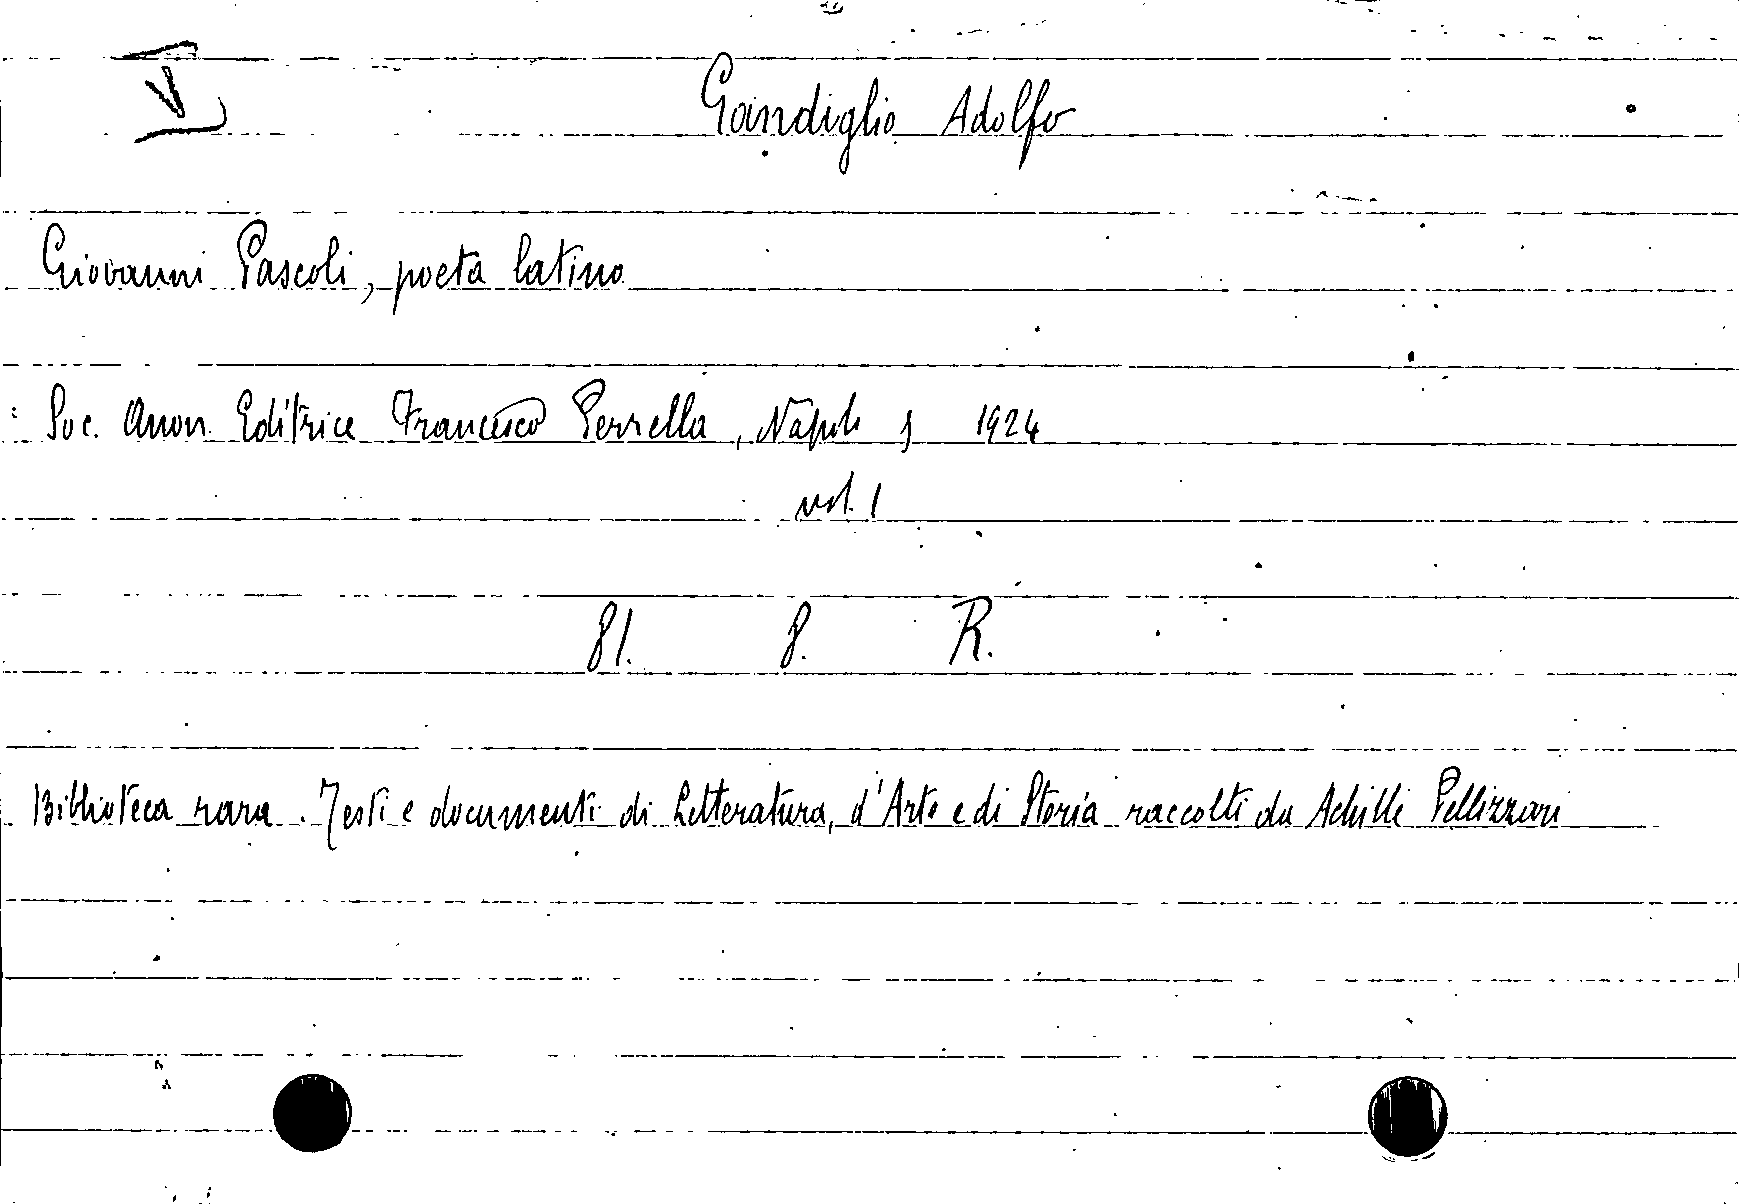 V
Gandiglio Adolfo
Giovanni Pascoli, poeta latino
Soc. Anon. Editrice Francesco Perrella, Napoli, 1924
vol. 1
81. 8. R.
Biblioteca rara. Testi e documenti di Letteratura, d'Arte e di Storia raccolti da Achille Pellizzari